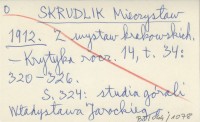 0 SKRUDLIK Mieczysław
1912. Z wystaw krakowskich.
- Krytyka rocz. 14, t. 34:
320-326.
S. 324: studia górali
Władysława Jarockiego